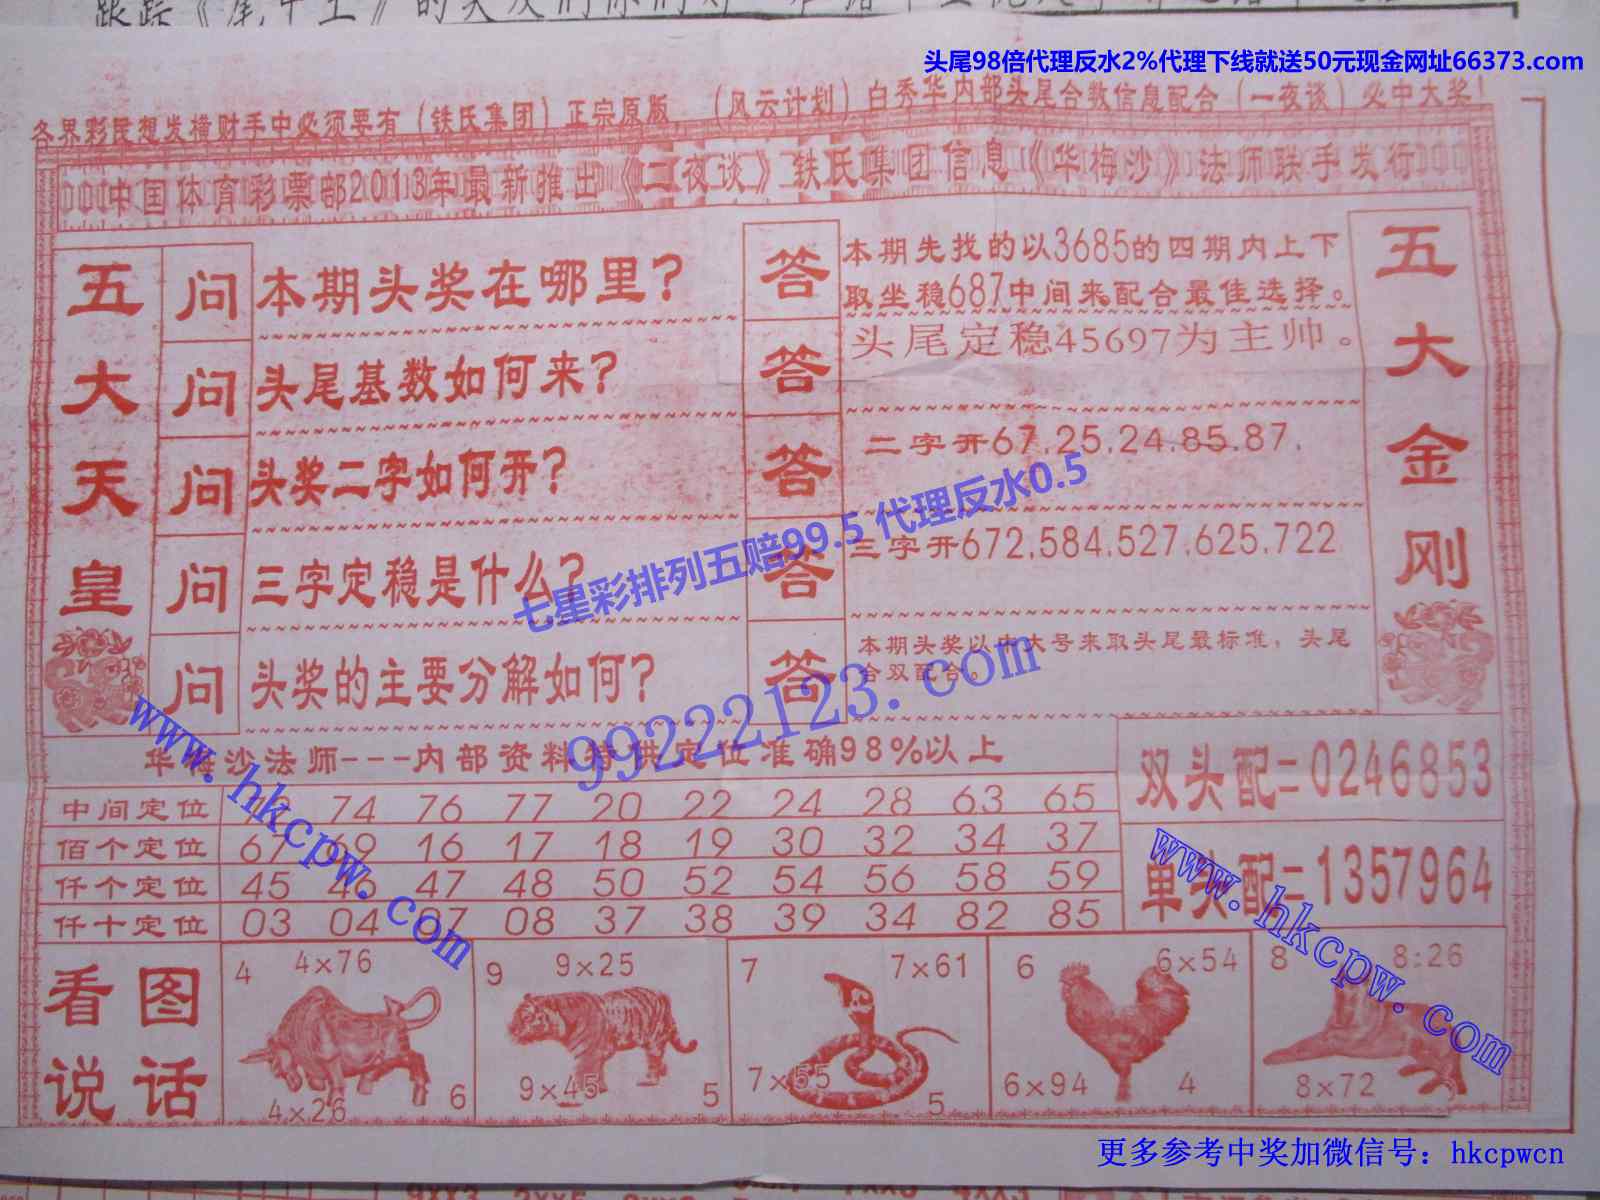 头尾98倍代理反水2%代理下线就送50元现金网址66373.com
各界彩民想发横财手中必须要有（铁氏集团）正宗原版，（风云计划）白秀华内部头尾合数信息配合（一夜谈）必中大奖！
中国体育彩票部2013年最新推出《二夜谈》铁氏集团信息《华梅沙》法师联手发行
五大天皇
问 本期头奖在哪里？
问 头尾基数如何来？
问 头奖二字如何开？
问 三字定稳是什么？
问 头奖的主要分解如何？
答 本期先找的以3685的四期内上下
取坐稳687中间来配合最佳选择。
答 头尾定稳45697为主帅。
答 二字开67.25.24.85.87.
答 三字开672.584.527.625.722
答 本期头奖以中大号来取头尾最标准，头尾
合双配合。
五大金刚
七星彩排列五赔99.5 代理反水0.5
99222123.com
www.hkcpw.com
www.hkcpw.com
华梅沙法师---内部资料特供定位准确98%以上
中间定位 74 76 77 20 22 24 28 63 65
佰个定位 67 69 16 17 18 19 30 32 34 37
仟个定位 45 46 47 48 50 52 54 56 58 59
仟十定位 03 04 07 08 37 38 39 34 82 85
双头配=0246853
单头配=1357964
看图
说话
4 4×76
4×26 6
9 9×25
9×45 5
7 7×61
7×55 5
6 6×54
6×94 4
8 8:26
8×72
更多参考中奖加微信号：hkcpwcn